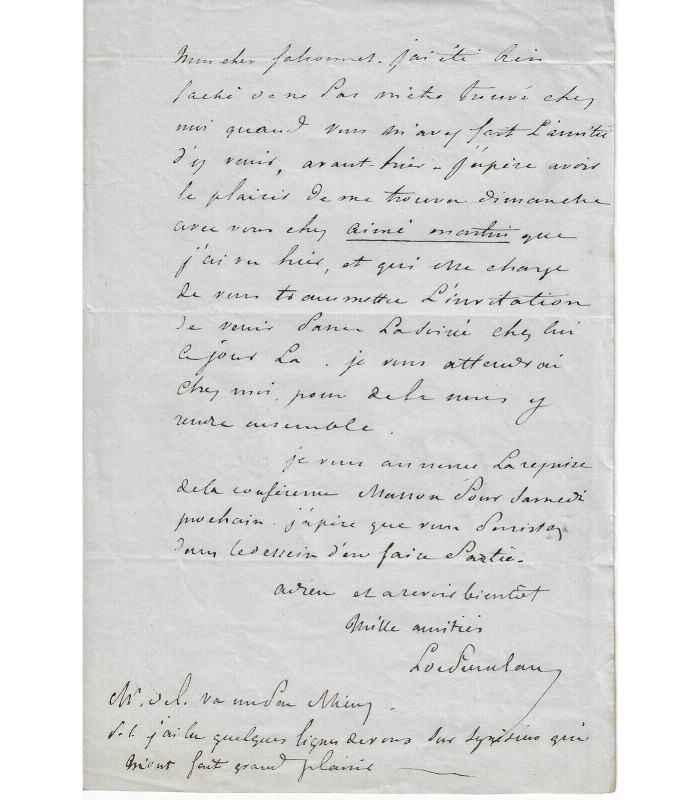 Mon cher falconnet. j'ai été bien
faché de ne Pas m'etre trouvé chez
moi quand vous m'avez fait L'amitié
d'y venir, avant-hier - j'espère avoir
le plaisir de me trouver dimanche
avec vous chez aimé martin que
j'ai vu hier, et qui me charge
de vous transmettre L'invitation
de venir Passer La soirée chez lui
ce jour La. je vous attendrai
chez moi, pour de la nous y
rendre ensemble.
je vous annonce La reprise
de la conférence Masson Pour Samedi
prochain. j'espère que vous Persistez
dans le dessein d'en faire Partie.
adieu et a revoir bientôt
Mille amitiés
Mr. de L. va un Peu Mieux.
P. S. j'ai lu quelques lignes de vous Sur Synésius qui
m'ont fait grand plaisir